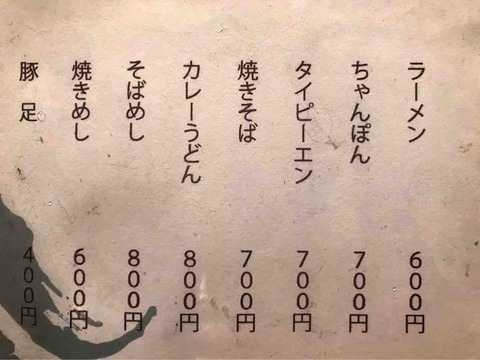 ラーメン 600円
ちゃんぽん 700円
タイピーエン 700円
焼きそば 700円
カレーうどん 800円
そばめし 800円
焼きめし 600円
豚足 400円